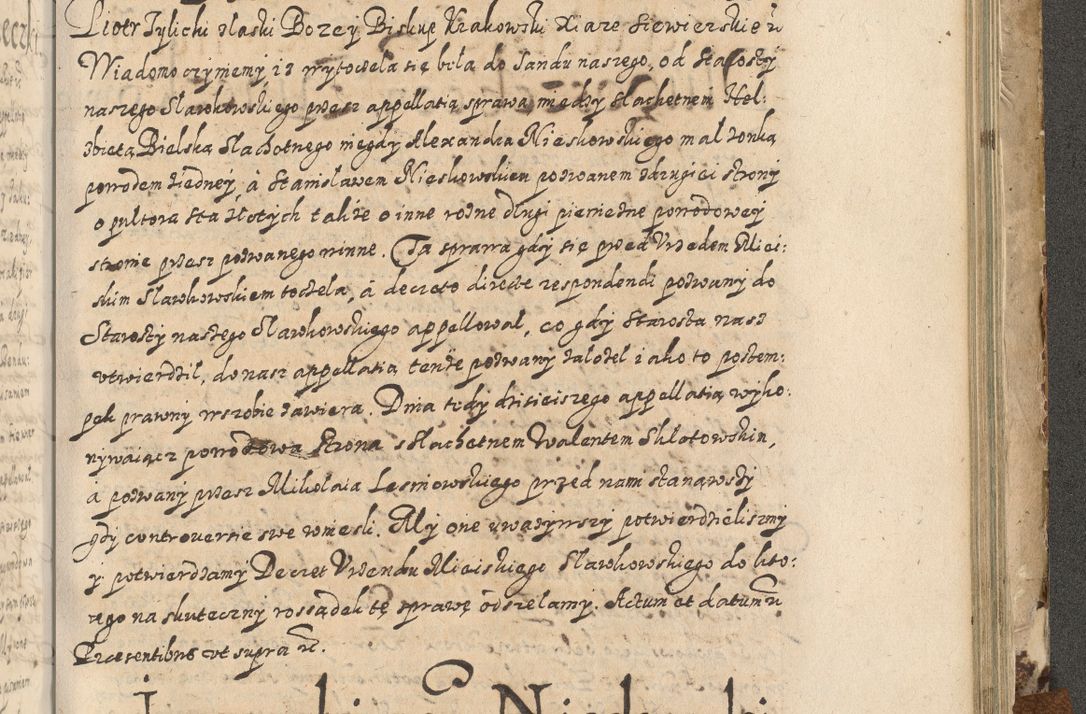 Piotr Tylicki z łaski Bozey Biskup Krakowski Xiaze Siewierskie ێc
Wiadomo czyniemy iz wytoczela się beła do Sandu naszego, od Starosty
naszego Sławkowskiego przez appellatią sprawa między Slachetnem Hel:
zbietą Bielską Slachotnego niegdy Alexandra Nieskowskiego małzonką
powodem ziedney, à Stanisławem Nieskowskiem pozwanem zdrugiei strony
o pułtora sta złotych także o inne rozne długi pieniezne powodowey
stronie przez pozwanego winne. Ta sprawa gdy się przed Vrzedem Miei:
skim Sławkowskiem toczela, à decreto directe respondendi pozwany do
Starosty naszego Sławkowskiego appellował, co gdy Starosta nasz
vtwierdził, do nasz appellatią tenże pozwany założeł iako to postem:
pek prawny wszobie zawiera. Dnia tedy dzisieiszego appellatią wyko:
nywaiącz powodowa strona z Slachetnem Walentem Skłotowskim,
à pozwany przez Mikołaia Lesniowskiego przed nami stanąwszy
gdy controuersie swe wniesli. My one vwazywszy potwierdzieliszmy
y potwierdzamy Decret Vrzendu Mieiskiego Sławkowskiego do kto:
rego na skuteczny rossądek tę sprawę odszelamy. Actum et datum vt
Praesentibus vt supra ێc.